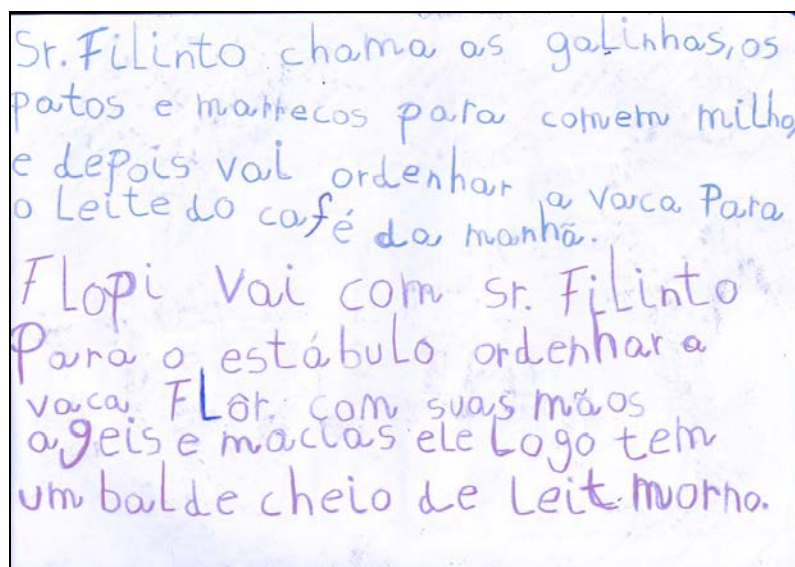 Sr. Filinto chama as galinhas, os
patos e marrecos para comem milho
e depois vai ordenhar a vaca Para
o Leite do café da manhã.
Flopi Vai com Sr. Filinto
Para o estábulo ordenhar a
vaca FLôr. com suas mãos
ageis e macias ele Logo tem
um balde cheio de Leit morno.